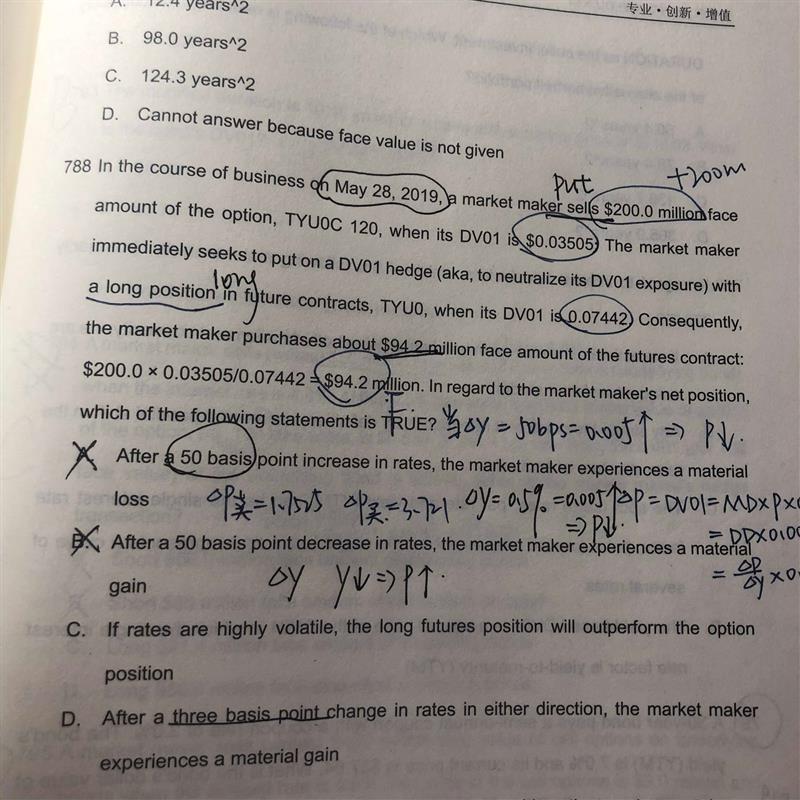 A. 12.4 years^2
专业·创新·增值
B. 98.0 years^2
C. 124.3 years^2
D. Cannot answer because face value is not given
put +200m
788 In the course of business on May 28, 2019, a market maker sells $200.0 million face
amount of the option, TYU0C 120, when its DV01 is $0.03505. The market maker
immediately seeks to put on a DV01 hedge (aka, to neutralize its DV01 exposure) with
long
a long position in future contracts, TYU0, when its DV01 is 0.07442. Consequently,
the market maker purchases about $94.2 million face amount of the futures contract:
$200.0 × 0.03505/0.07442 = $94.2 million. In regard to the market maker's net position,
which of the following statements is TRUE? 当ΔY = 50bps = 0.005↑ => P↓.
A. After a 50 basis point increase in rates, the market maker experiences a material
loss ΔP卖=1.7525 ΔP买=3.721. ΔY=0.5%=0.005↑ ΔP=DV01=MD×P×0
=>P↓. = DD×0.00
B. After a 50 basis point decrease in rates, the market maker experiences a material
gain ΔY Y↓=>P↑. = ΔP/ΔY ×0.
C. If rates are highly volatile, the long futures position will outperform the option
position
D. After a three basis point change in rates in either direction, the market maker
experiences a material gain